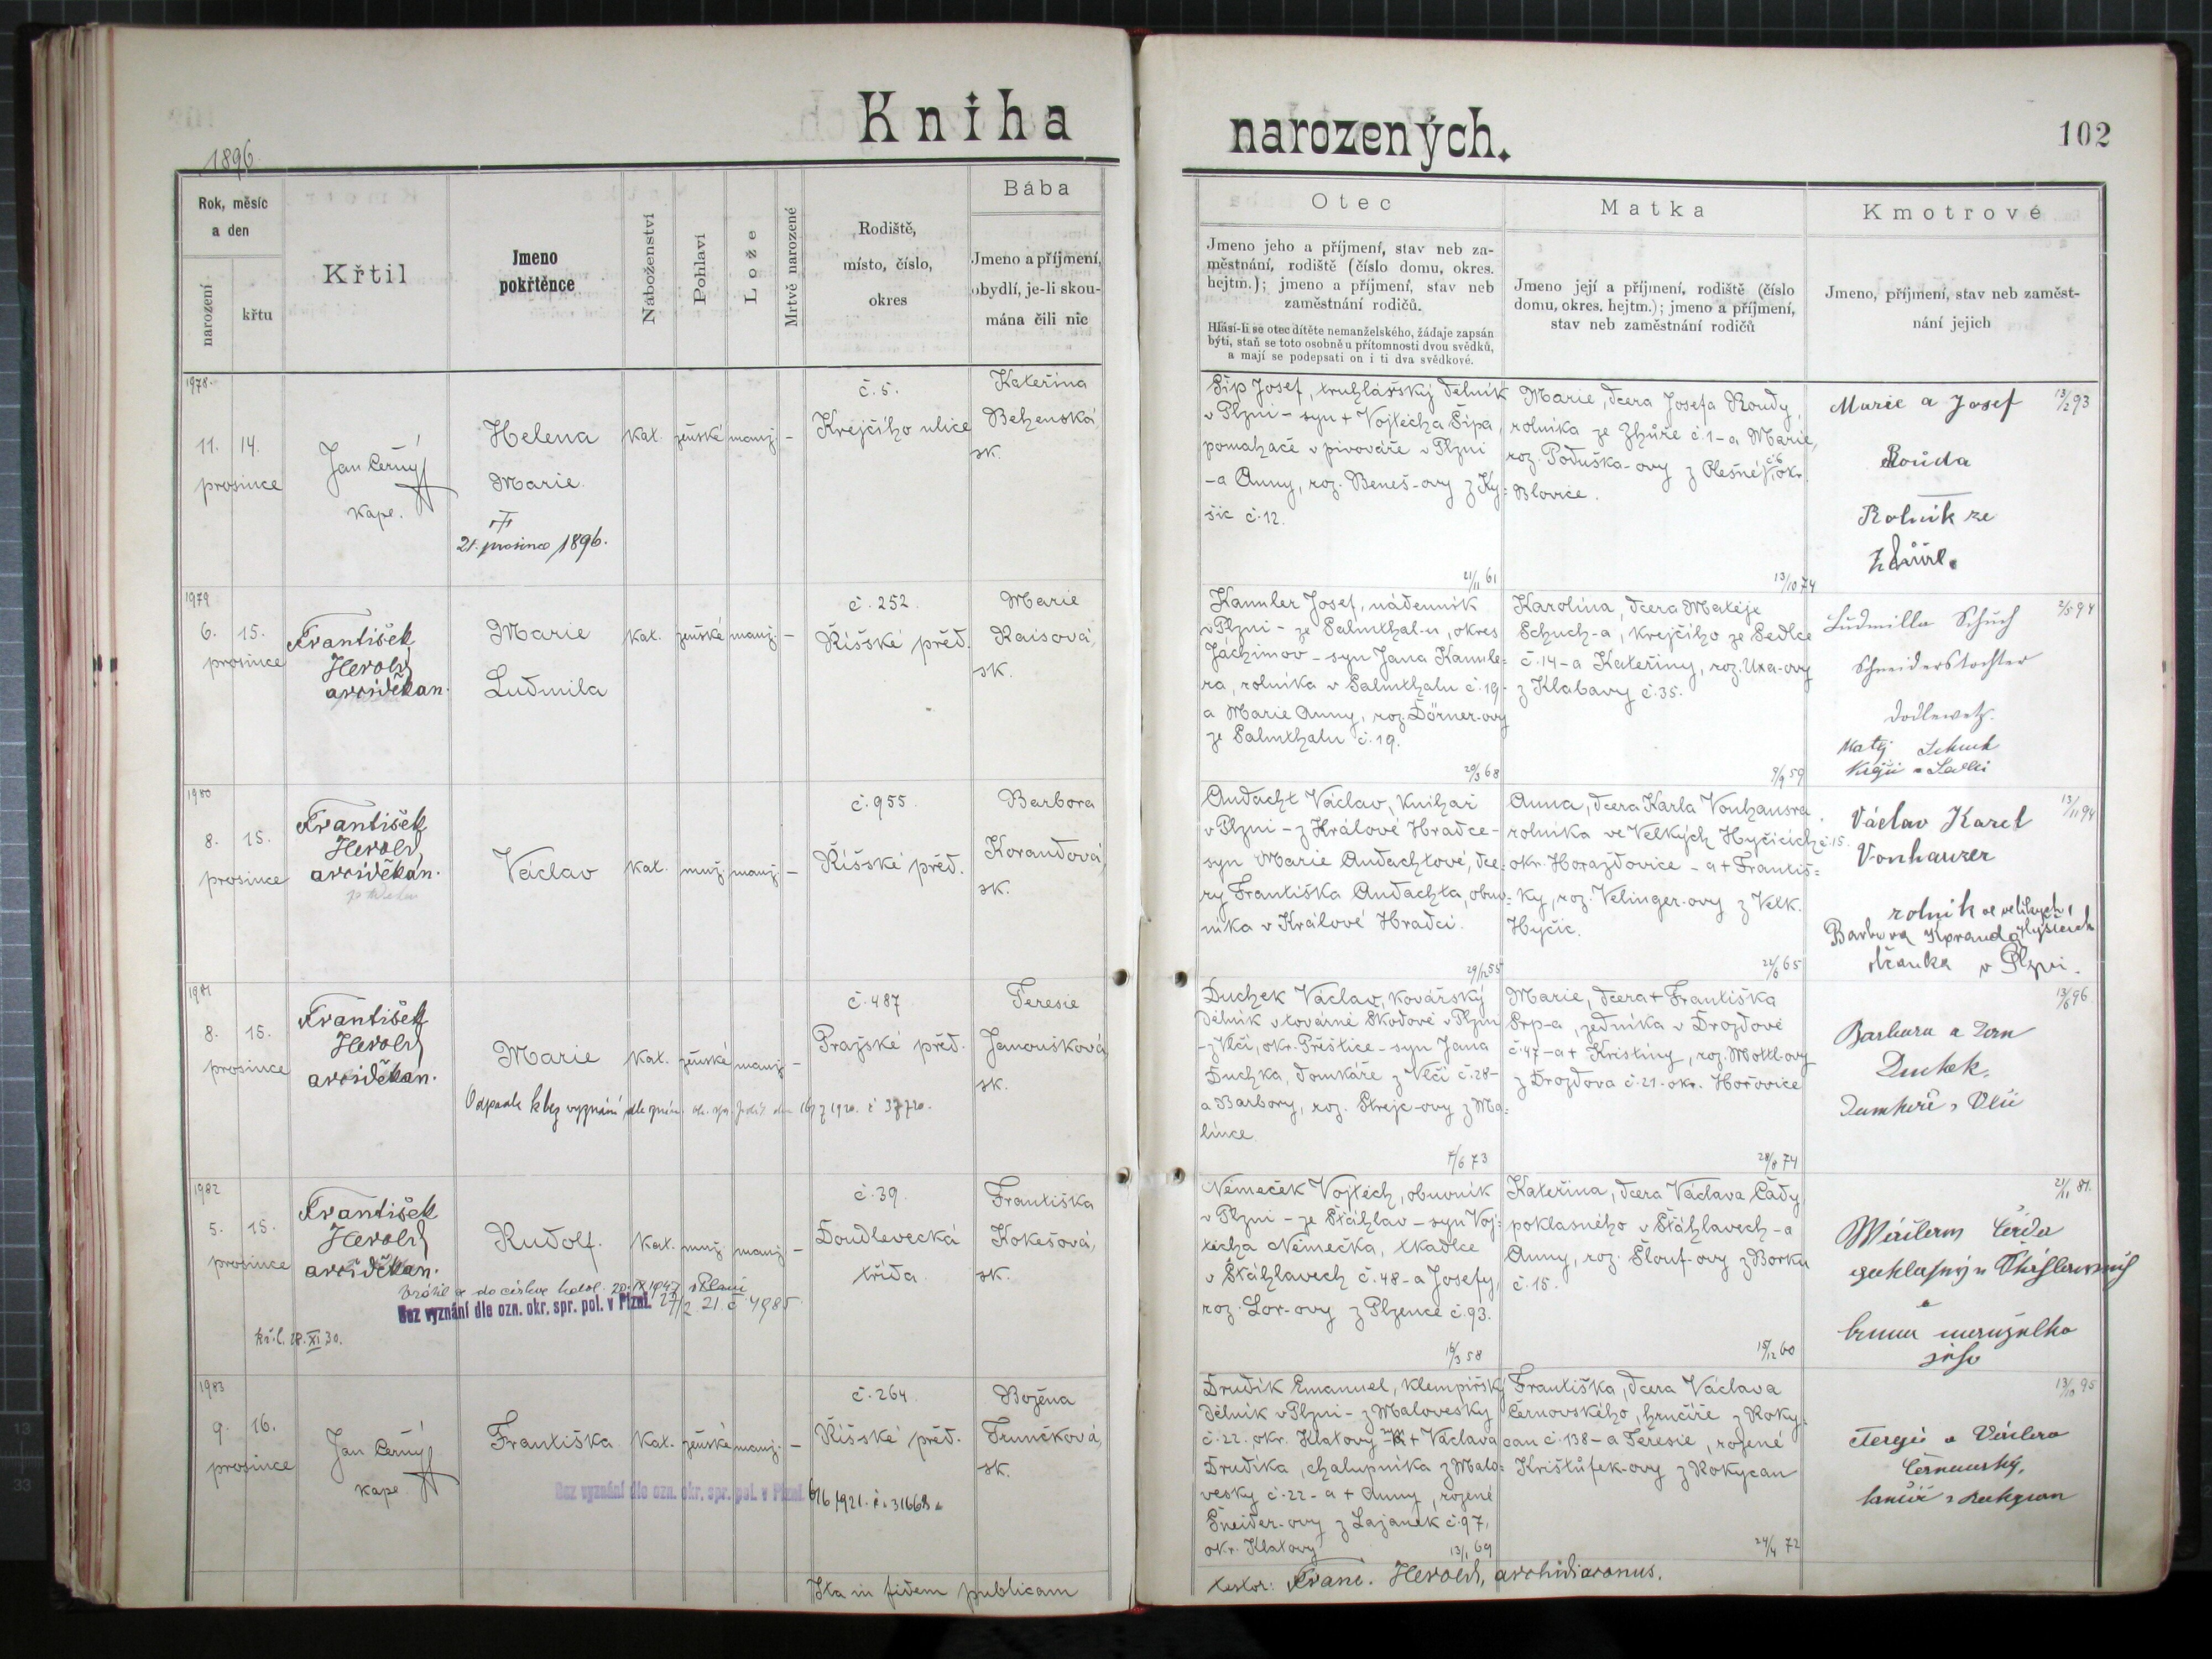 Kniha
narozených.
102
1896.
Rok, měsíc
a den
narození
křtu
Křtil
Jmeno
pokřtěnce
Náboženství
Pohlaví
Lože
Mrtvě narozené
Rodiště,
místo, číslo,
okres
Bába
Jmeno a příjmení,
obydlí, je-li skou-
mána čili nic
Otec
Jmeno jeho a příjmení, stav neb za-
městnání, rodiště (číslo domu, okres.
hejtm.); jmeno a příjmení, stav neb
zaměstnání rodičů.
Hlásí-li se otec dítěte nemanželského, žádaje zapsán
býti, staň se toto osobně u přítomnosti dvou svědků,
a mají se podepsati on i ti dva svědkové.
Matka
Jmeno její a příjmení, rodiště (číslo
domu, okres. hejtm.); jmeno a příjmení,
stav neb zaměstnání rodičů
Kmotrové
Jmeno, příjmení, stav neb zaměst-
nání jejich
1978.
11. 14.
prosince
Jan Černý
kape.
Helena
Marie
21. prosince 1896.
kat. ženské manž. –
č. 5.
Krejčího ulice
Kateřina
Behenská,
sk.
Šíp Josef, truhlářský dělník
v Plzni – syn + Vojtěcha Šípa,
pomahače v pivováře v Plzni
– a Anny, roz. Beneš-ovy z Ky-
šic č. 12.
21/11 61
Marie, dcera Josefa Roudy,
rolníka ze Zhůře č. 1 – a Marie,
roz. Poduška-ovy z Olešné č. 6, okr.
Blovice.
13/10 74
Marie a Josef
13/2 93
Rouda
Rolník ze
Zhůře.
1979
6. 15.
prosince
František
Herold
arciděkan.
Marie
Ludmila
kat. ženské manž. –
č. 252.
Říšské před.
Marie
Raisová,
sk.
Kannler Josef, nádenník
v Plzni – ze Salmthal-u, okres
Jáchimov – syn Jana Kannle-
ra, rolníka v Salmthalu č. 19 –
a Marie Anny, roz. Dörner-ovy
ze Salmthalu č. 19.
20/3 68
Karolina, dcera Matěje
Schuch-a, krejčího ze Sedlce
č. 14 – a Kateřiny, roz. Uxa-ovy
z Klabavy č. 35.
9/9 59
Ludmilla Schuch
2/5 94
Schneiderstochter
Dodlewetz.
Matěj Schuch
1980
8. 15.
prosince
František
Herold
arciděkan.
Václav
kat. muž. manž. –
č. 955.
Říšské před.
Barbora
Korandová,
sk.
Andacht Václav, knihař
v Plzni – z Králové Hradce –
syn Marie Andachtové, dce-
ry Františka Andachta, obuv-
níka v Králové Hradci.
29/12 55
Anna, dcera Karla Vonhausra,
rolníka ve Velkých Hyčicích č. 15.
okr. Horažďovice – a + Františ-
ky, roz. Velinger-ovy z Velk.
Hyčic.
22/6 65
Václav Karel
13/11 94
Vonhauzer
rolník ve velikých
Hyčicích
Barbora Koranda
v Plzni.
1981
8. 15.
prosince
František
Herold
arciděkan.
Marie
kat. ženské manž. –
Odpadla k bez vyznání dle
č. 487
Pražské před.
Teresie
Janoušková,
sk.
Duchek Václav, kovářský
dělník v továrně Škodově v Plzni
– z Vlčí, okr. Přeštice – syn Jana
Duchka, domkáře z Vlčí č. 28 –
a Barbory, roz. Strejc-ovy z Ma-
lince.
7/6 73
Marie, dcera + Františka
Srp-a, zedníka v Drozdově
č. 47 – a + Kristiny, roz. Mottl-ovy
z Drozdova č. 21 – okr. Hořovice
28/8 74
13/6 96.
Barbara a Jan
Duchek.
1982
5. 15.
prosince
František
Herold
arciděkan.
Rudolf.
kat. muž. manž. –
Vrátil se do církve katol. 20. IX 1947 v Plzni
Bez vyznání dle ozn. okr. spr. pol. v Plzni. 27/2. 21. č 4985
kř. l. 28. XI 30.
č. 39.
Doudlevecká
třída.
Františka
Kokešová,
sk.
Němeček Vojtěch, obuvník
v Plzni – ze Štáhlav – syn Voj-
těcha Němečka, tkadlce
v Štáhlavech č. 48 – a Josefy,
roz. Lor-ovy z Plzence č. 93.
16/3 58
Kateřina, dcera Václava Čády,
poklasného v Štáhlavech – a
Anny, roz. Šlouf-ovy z Borku
č. 15.
15/12 60
21/11 81.
1983
9. 16.
prosince
Jan Černý
kape.
Františka
kat. ženské manž. –
Bez vyznání dle ozn. okr. spr. pol. v Plzni. 6/6 1921. č. 31668.
č. 264.
Říšské před.
Božena
Trunčková,
sk.
Drudík Emanuel, klempířský
dělník v Plzni – z Malovesky
č. 22. okr. Klatovy – syn + Václava
Drudíka, chalupníka z Malo-
vesky č. 22 – a + Anny, rozené
Šneider-ovy z Lajanek č. 97,
okr. Klatovy
13/1 69
Františka, dcera Václava
Černovského, hrnčíře z Roky-
can č. 138 – a Teresie, rozené
Krištůfek-ovy z Rokycan
24/4 72
13/10 95
Ita in fidem publicam
testor: Franc. Herold, archidiaconus.